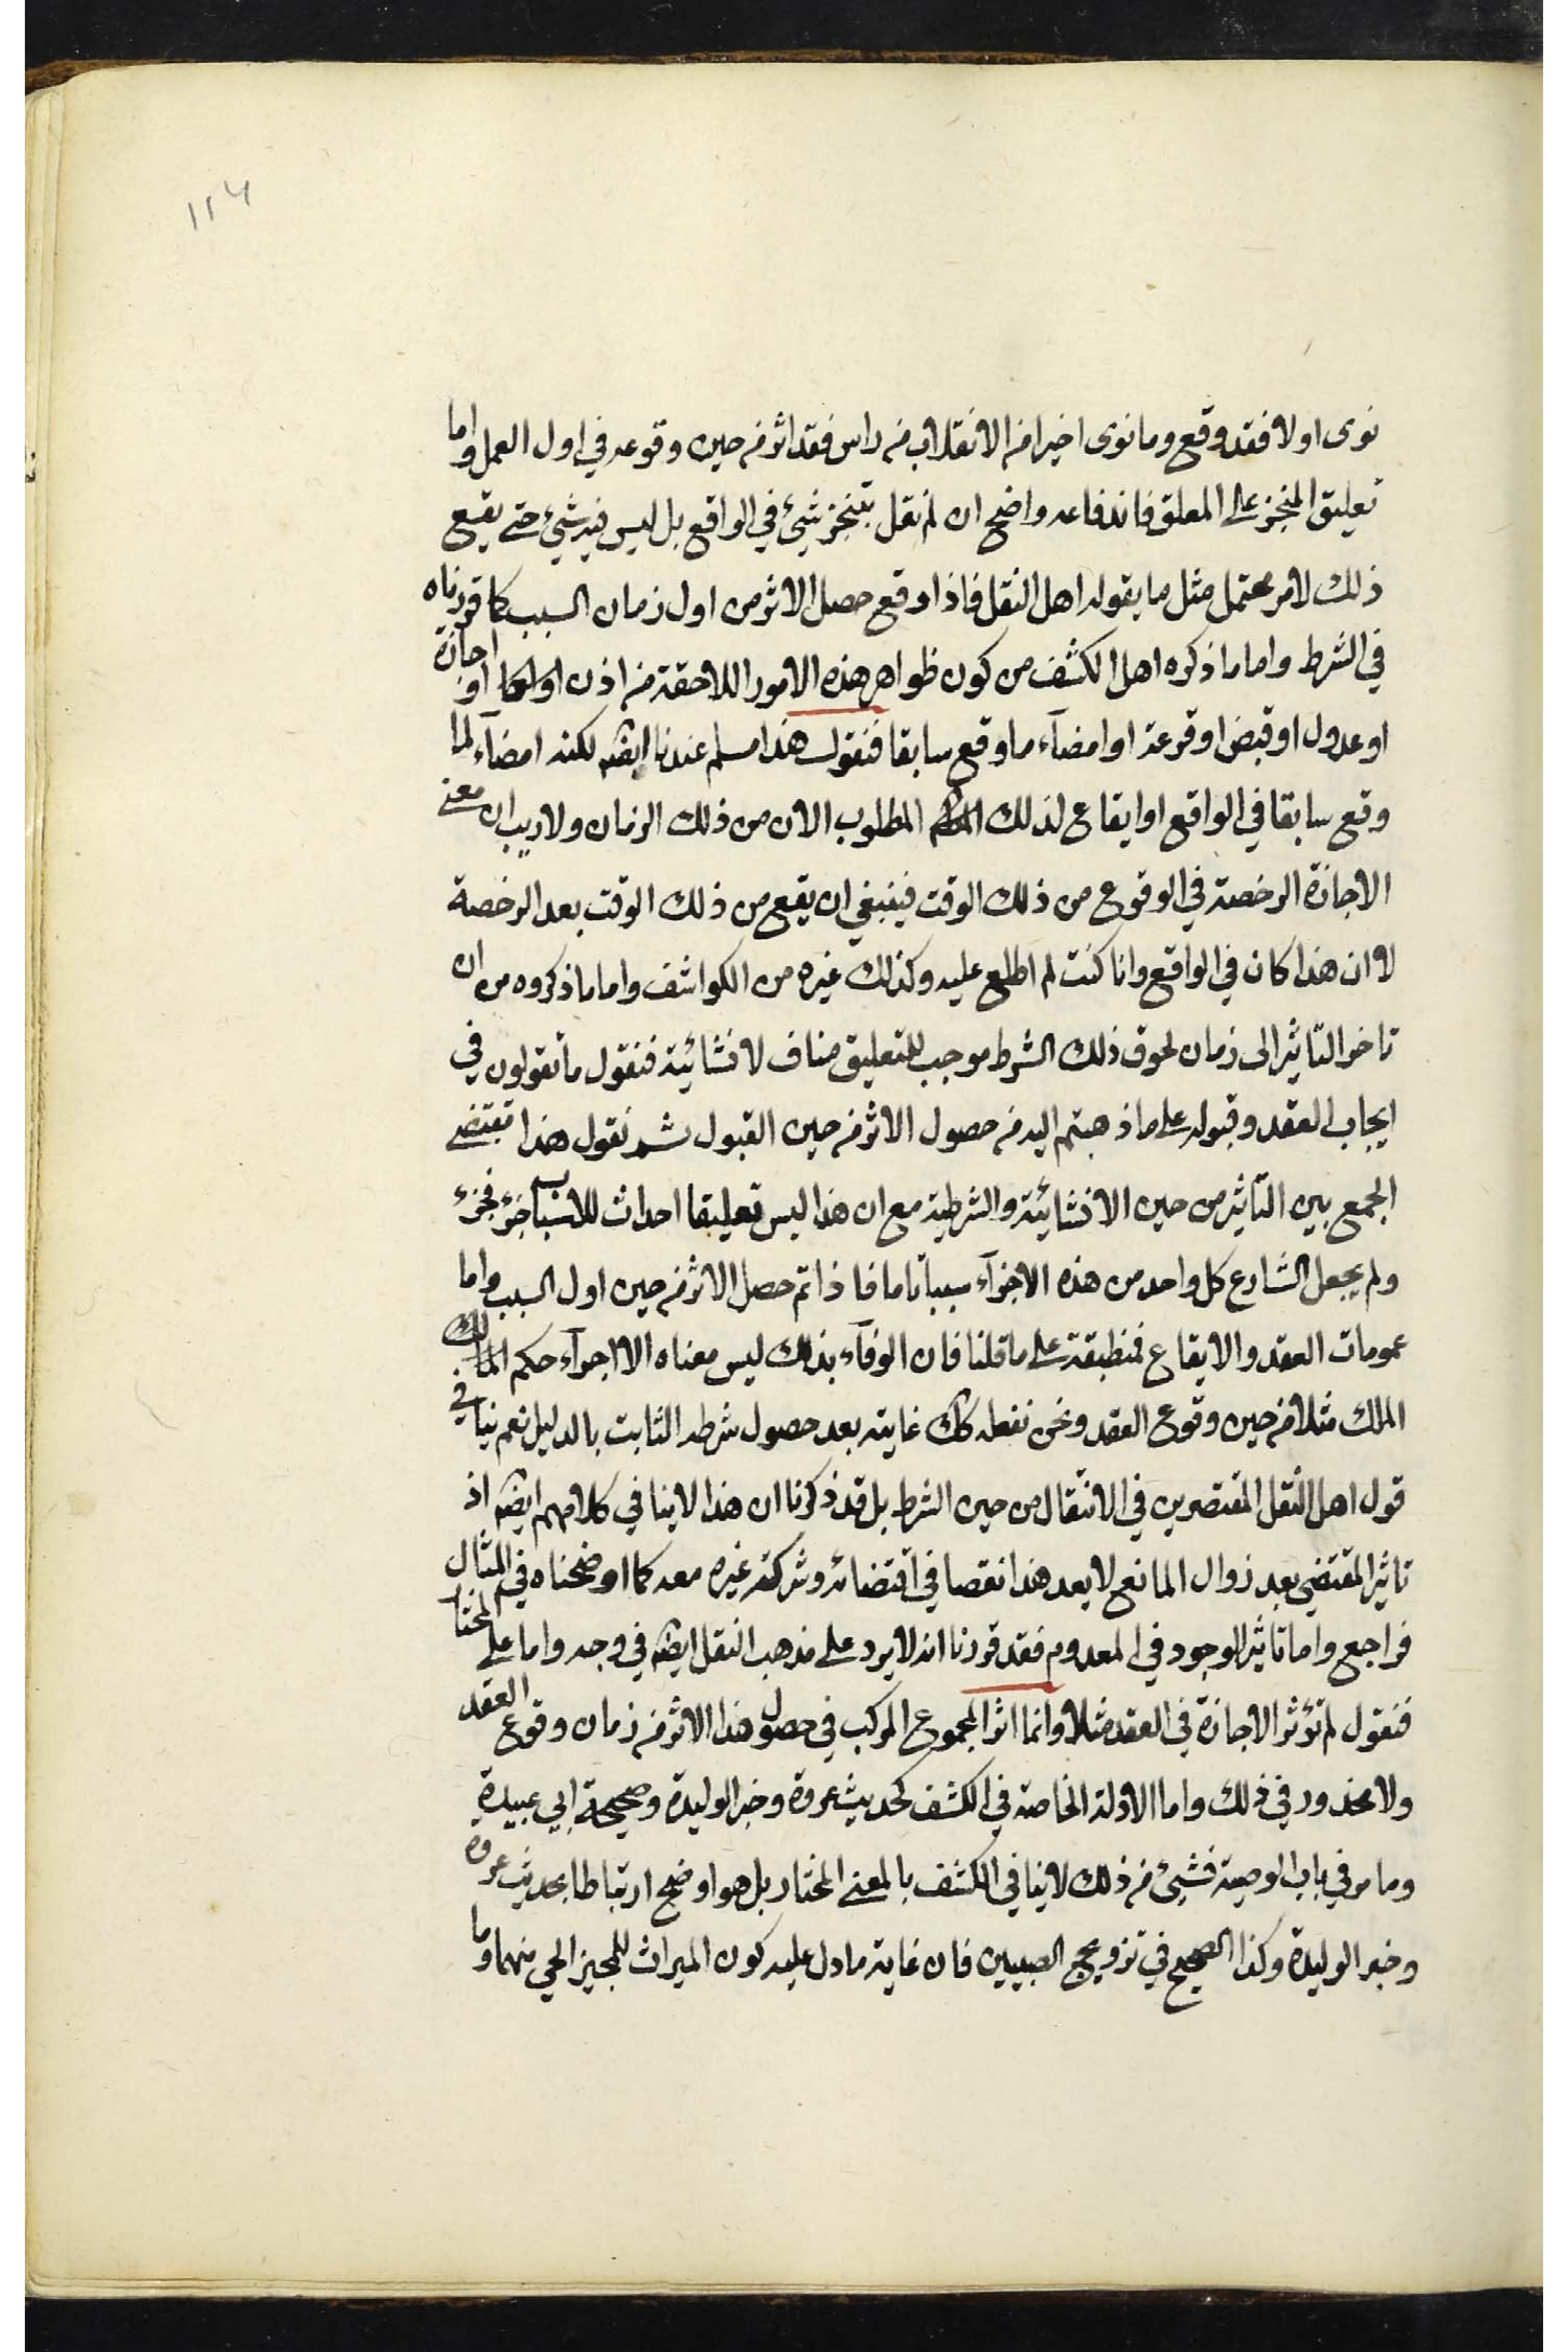 ١١٤
نوى اولا فقد وقع وما نوى اخيرا من الانقلاب من راس فقد اثر من حين وقوعه في اول العمل واما
تعليق المنجز على المعلق فاندفاعه واضح ان لم نقل بتنجز شيئ في الواقع بل ليس فيه شيئ حتى يقع
ذلك لامر محتمل مثل ما يقوله اهل النقل فاذا وقع حصل الاثر من اول زمان السبب كما قررناه
في الشرط واما ما ذكره اهل الكشف من كون ظواهر هذه الامور اللاحقة من اذن او اجازة
او عدول او قبض او قرعة او امضآء ما وقع سابقا فنقول هذا مسلم عندنا ايضا لكنه امضآء لما
وقع سابقا في الواقع او ايقاع لذلك المطلوب الان من ذلك الزمان ولا ريب ان معنى
الاجازة الرخصة في الوقوع من ذلك الوقت فينبغي ان يقع من ذلك الوقت بعد الرخصة
لا ان هذا كان في الواقع وانا كنت لم اطلع عليه وكذلك غيره من الكواشف واما ما ذكروه من ان
تاخر التاثير الى زمان لحوق ذلك الشرط موجب للتعليق مناف لانشائية فنقول ما تقولون في
ايجاب العقد وقبوله على ما ذهبتم اليه من حصول الاثر من حين القبول ثم نقول هذا مقتضى
الجمع بين التاثير من حين الانشائية والشرطية مع ان هذا ليس تعليقا احداث للاسباب جزء فجزء
ولم يجعل الشارع كل واحد من هذه الاجزآء سببا تاما فاذا تم حصل الاثر من حين اول السبب واما
عمومات العقد والايقاع فمنطبقة على ما قلنا فان الوفآء بذلك ليس معناه الا اجرآء حكم المالك
الملك مثلا من حين وقوع العقد ونحن نفعله كك غايته بعد حصول شرطه الثابت بالدليل نعم ينافي
قول اهل النقل المقتصرين في الانتقال من حين الشرط بل قد ذكرنا ان هذا لا ينافي كلامهم ايضا اذ
تاثير المقتضي بعد زوال المانع لا يعد هذا نقصا في اقتضائه وشركة غيره معه كما اوضحناه في المثال
فراجع واما تاثير الوجود في المعدوم فقد قررنا انه لا يرد على مذهب النقل ايضا في وجه واما على المختار
فنقول لم تؤثر الاجازة في العقد مثلا وانما اثر المجموع المركب في حصول هذا الاثر من زمان وقوع العقد
ولا محذور في ذلك واما الادلة الخاصة في الكشف كحديث عروة وخبر الوليدة وصحيحة ابي عبيدة
وما مر في باب الوصية فشيئ من ذلك لا ينافي الكشف بالمعنى المختار بل هو اوضح ارتباطا بحديث عروه
وخبر الوليدة وكذا الصحيح في تزويج الصبيين فان غاية ما دل عليه كون الميراث للمجيز الحي منهما وما